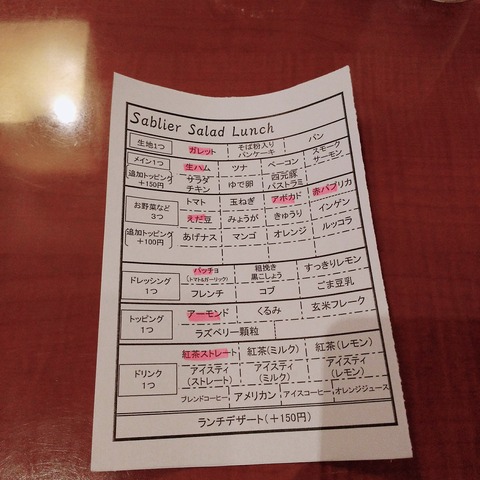 Sablier Salad Lunch
生地1つ ガレット そば粉入りパンケーキ パン
メイン1つ 生ハム ツナ ベーコン スモークサーモン
追加トッピング+150円 サラダチキン ゆで卵 四元豚パストラミ
お野菜など3つ トマト 玉ねぎ アボカド 赤パプリカ
えだ豆 みょうが きゅうり インゲン
追加トッピング+100円 あげナス マンゴ オレンジ ルッコラ
ドレッシング1つ バッチョ(トマト&ガーリック) 粗挽き黒こしょう すっきりレモン
フレンチ コブ ごま豆乳
トッピング1つ アーモンド くるみ 玄米フレーク
ラズベリー顆粒
ドリンク1つ 紅茶ストレート 紅茶(ミルク) 紅茶(レモン)
アイスティ(ストレート) アイスティ(ミルク) アイスティ(レモン)
ブレンドコーヒー アメリカン アイスコーヒー オレンジジュース
ランチデザート(+150円)